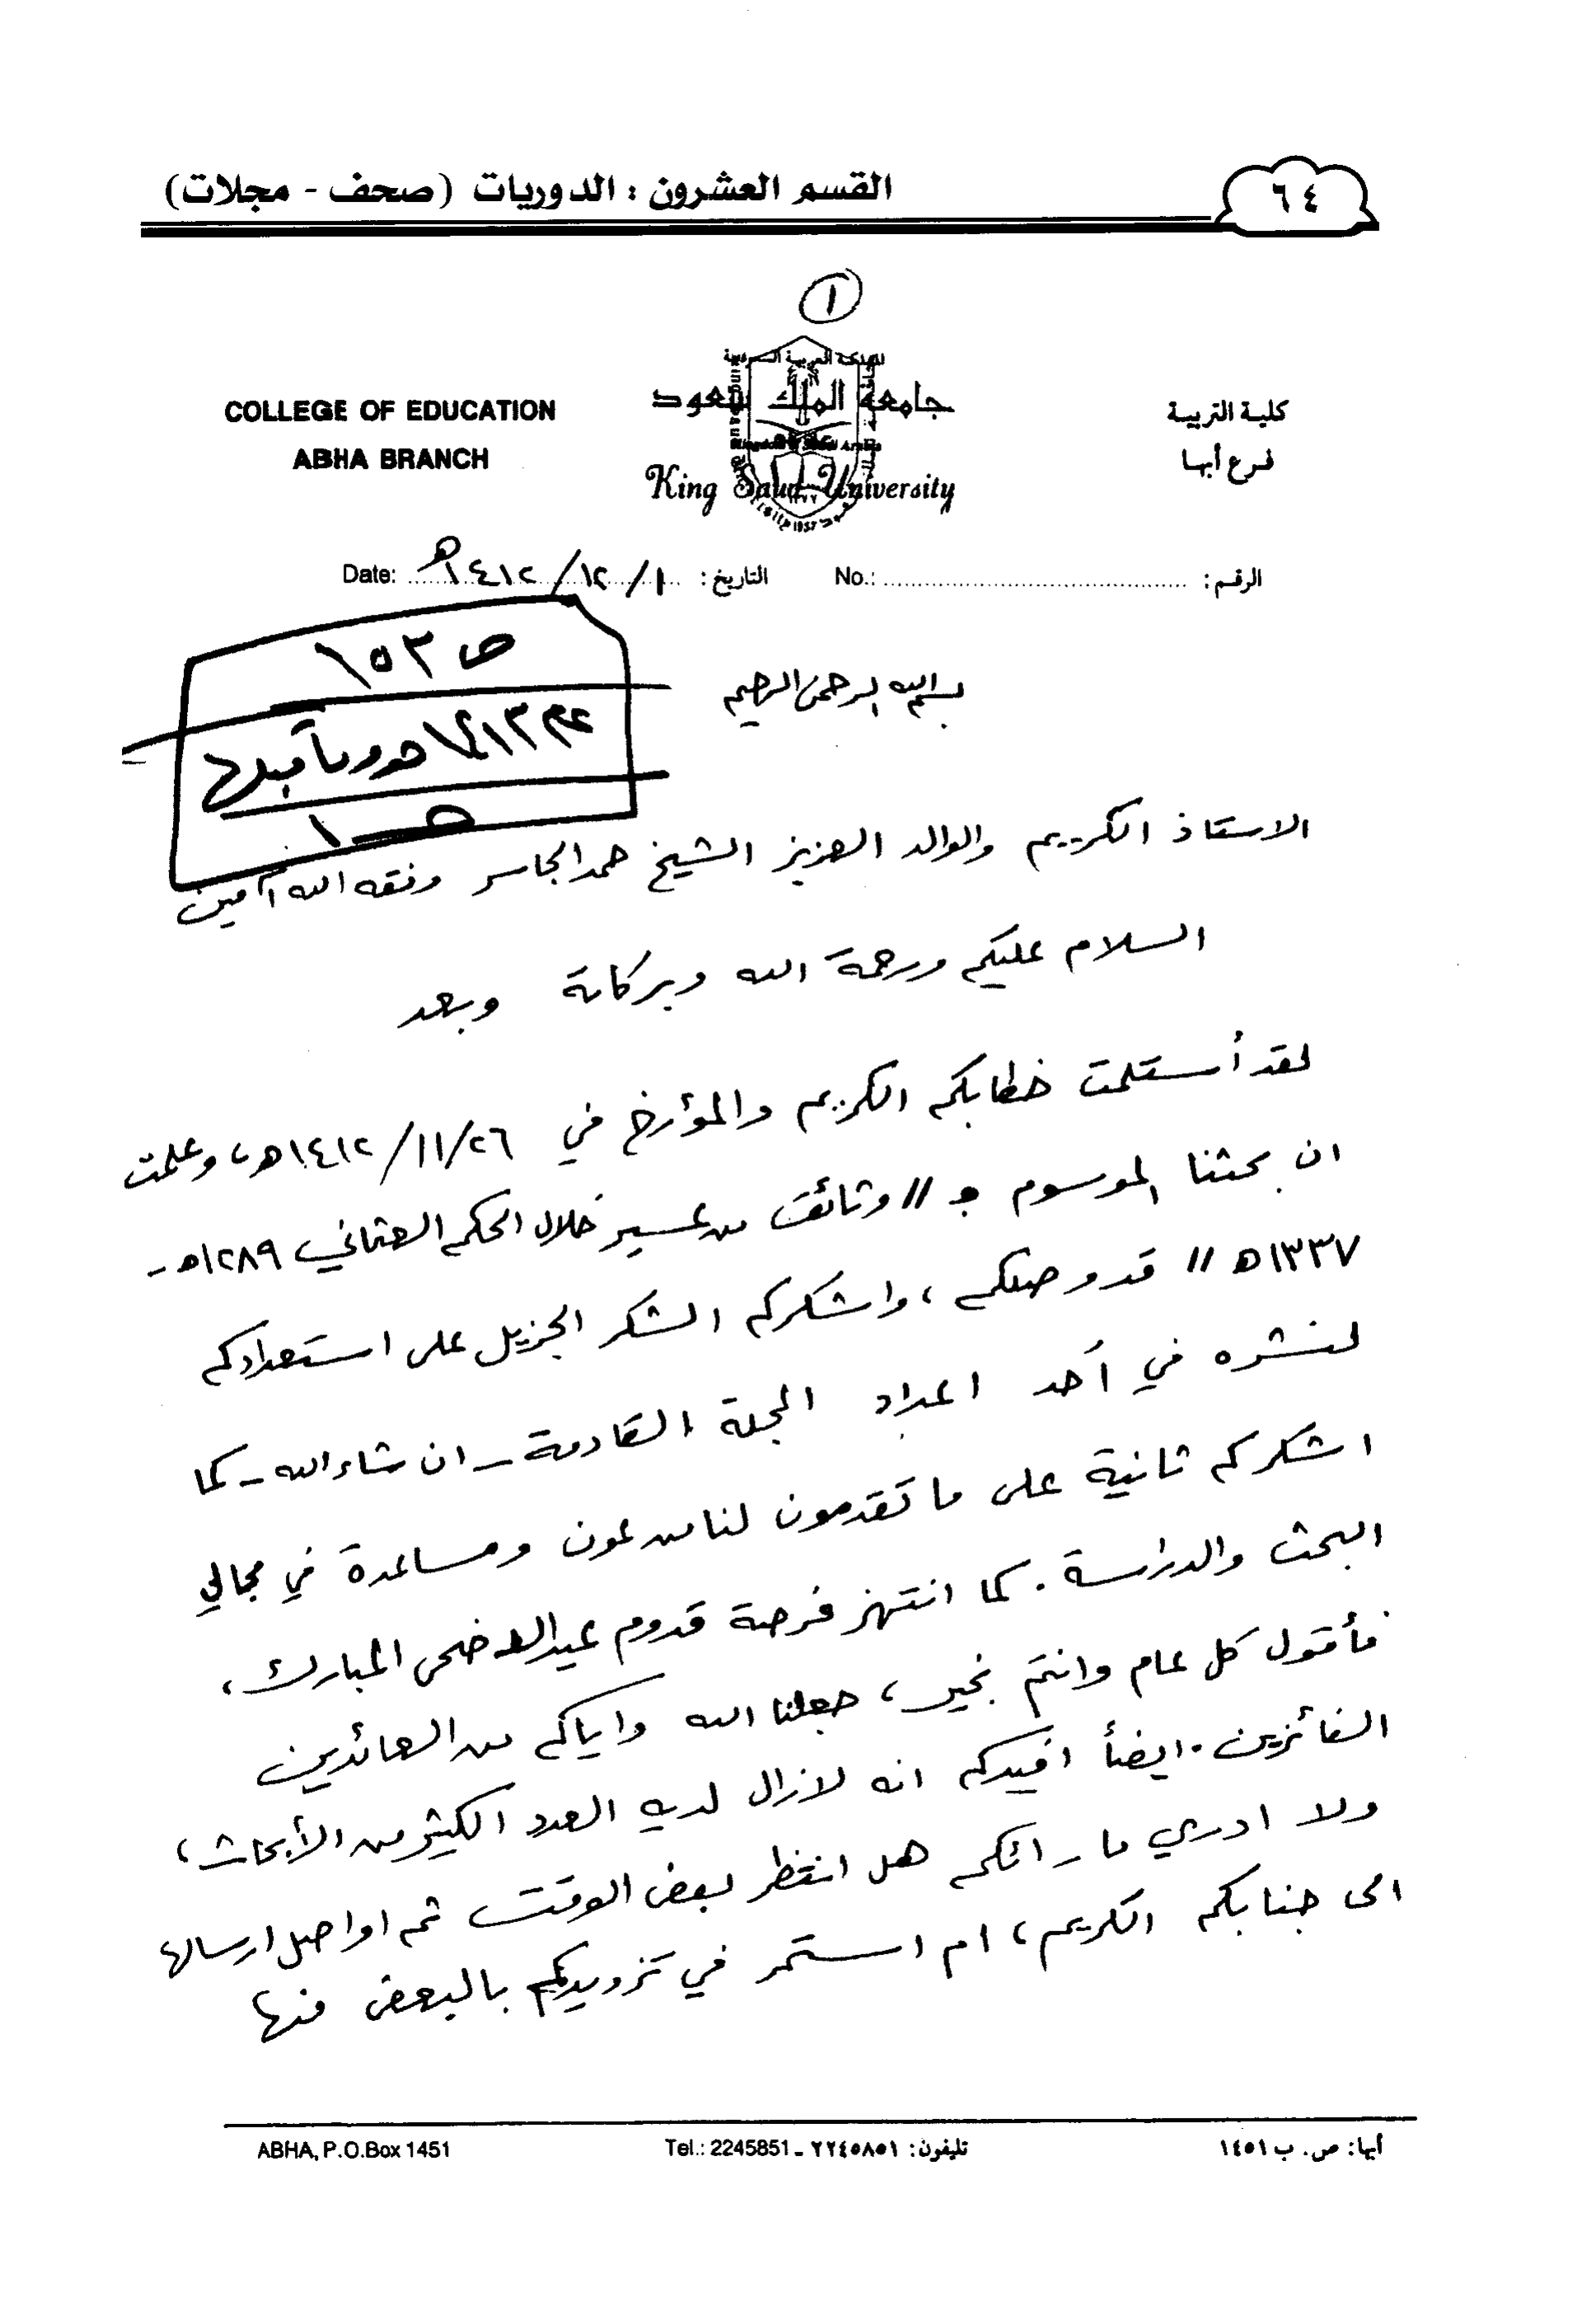 ٦٤
القسم العشرون : الدوريات (صحف - مجلات)
١
كلية التربية
فرع أبها
المملكة العربية السعودية
جامعة الملك سعود
King Saud University
COLLEGE OF EDUCATION
ABHA BRANCH
الرقم: No.:
التاريخ: ١/١٢/١٤١٢هـ Date:
ص ١٥٣
بسم الله الرحمن الرحيم
الاستاذ الكريم والوالد العزيز الشيخ حمد الجاسر وفقه الله آمين
السلام عليكم ورحمة الله وبركاتة وبعد
لقد أستلمت خطابكم الكريم والمؤرخ في ٢٦/١١/١٤١٢هـ، وعلمت
ان بحثنا الموسوم بـ // وثائق من عسير خلال الحكم العثماني ١٢٨٩هـ -
١٣٣٧هـ // قد وصلكم ، واشكركم الشكر الجزيل على استعدادكم
لنشره في أحد اعداد المجلة القادمة - ان شاء الله - كما
اشكركم ثانية على ما تقدمون لنا من عون ومساعدة في مجالي
البحث والدراسة . كما انتهز فرصة قدوم عيد الاضحى المبارك ،
فأقول كل عام وانتم بخير ، جعلنا الله واياكم من العائدين
الفائزين . ايضاً افيدكم انه لازال لديه العدد الكثير من الأبحاث ،
ولا ادري ما رائكم هل انتظر بعض الوقت ثم اواصل ارسالها
الى جنابكم الكريم ، ام استمر في تزويدكم بالبعض منها
أبها: ص. ب ١٤٥١
تليفون: ٢٢٤٥٨٥١ - Tel.: 2245851
ABHA, P.O.Box 1451